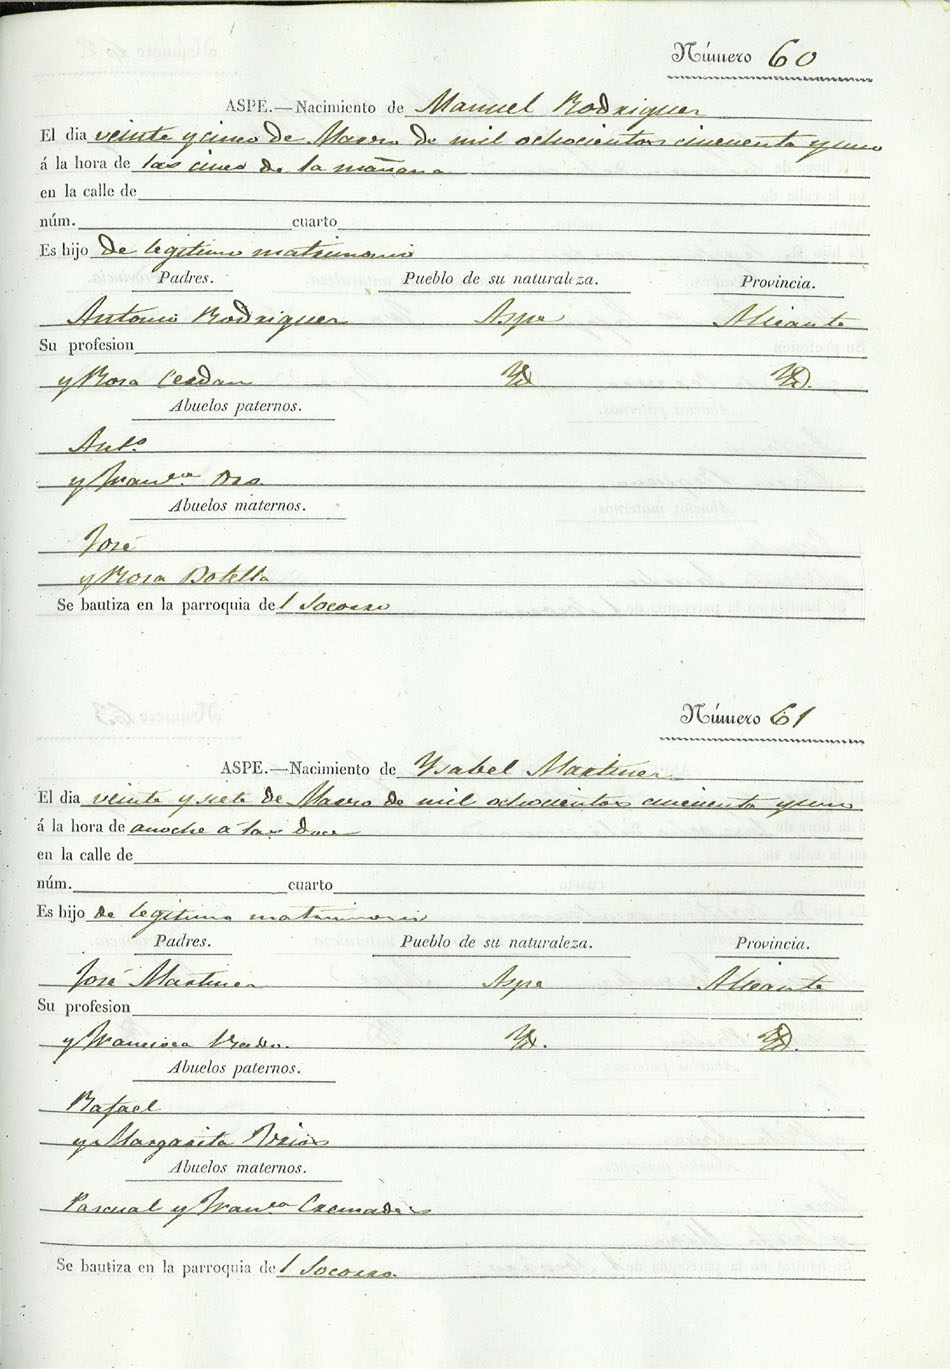 Número 60
ASPE.—Nacimiento de Manuel Rodriguez
El dia veinte y cinco de Marzo de mil ochocientos cincuenta y uno
á la hora de las cinco de la mañana
en la calle de
núm. cuarto
Es hijo de legitimo matrimonio
Padres. Pueblo de su naturaleza. Provincia.
Antonio Rodriguez Aspe Alicante
Su profesion
y Rosa Cerdan Yd Yd.
Abuelos paternos.
Ant.º
y Fran.ca
Abuelos maternos.
José
y Rosa Botella
Se bautiza en la parroquia del Socorro
Número 61
ASPE.—Nacimiento de Ysabel Martinez
El dia veinte y siete de Marzo de mil ochocientos cincuenta y uno
á la hora de anoche a las doce
en la calle de
núm. cuarto
Es hijo de legitimo matrimonio
Padres. Pueblo de su naturaleza. Provincia.
José Martinez Aspe Alicante
Su profesion
y Francisca Yd. Yd.
Abuelos paternos.
Rafael
y Margarita
Abuelos maternos.
Pascual y Fran.ca Cremades
Se bautiza en la parroquia del Socorro